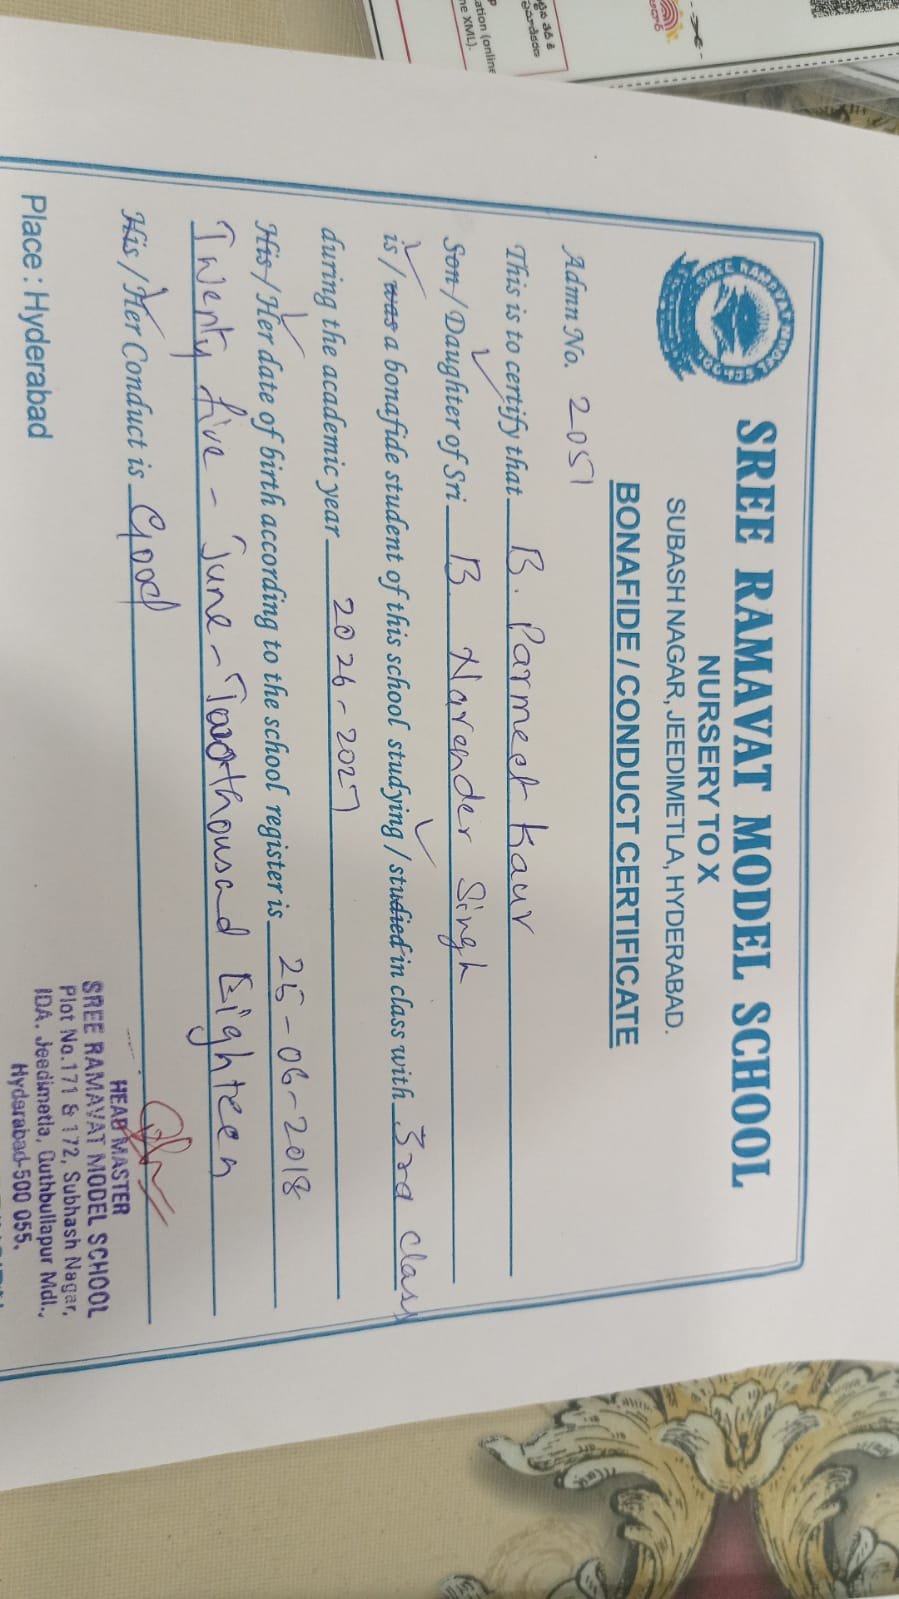 SREE RAMAVAT MODEL SCHOOL
NURSERY TO X
SUBASH NAGAR, JEEDIMETLA, HYDERABAD.
BONAFIDE / CONDUCT CERTIFICATE
Admn No. 2051
This is to certify that B. Parmeet Kaur
Son / Daughter of Sri B. Narender Singh
is / was a bonafide student of this school studying / studied in class with 3rd class
during the academic year 2026-2027
His / Her date of birth according to the school register is 25-06-2018
Twenty five - June - Two thousand Eighteen
His / Her Conduct is Good
Place : Hyderabad
HEAD MASTER
SREE RAMAVAT MODEL SCHOOL
Plot No.171 & 172, Subhash Nagar,
IDA. Jeedimetla, Quthbullapur Mdl.,
Hyderabad-500 055.
ation (online
ne XML).